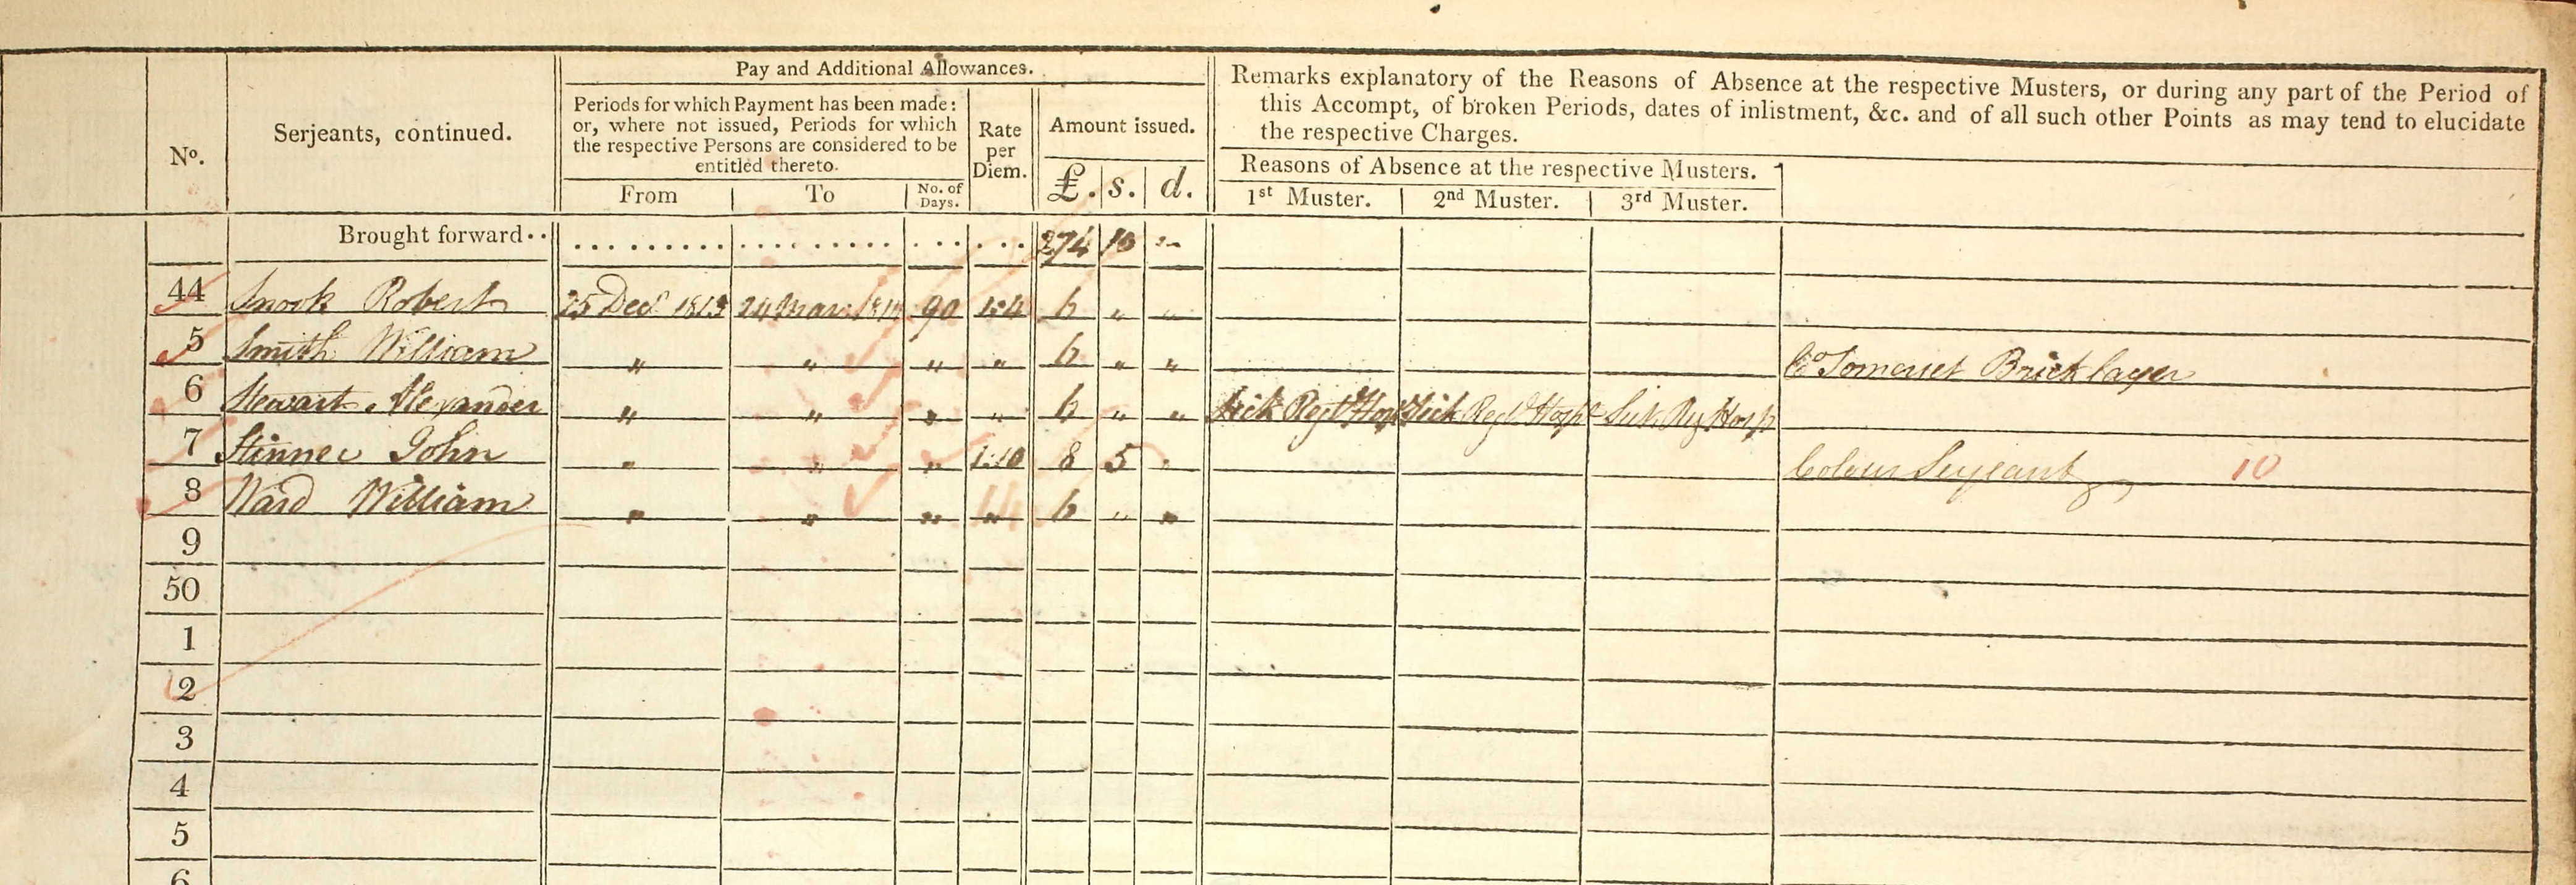 Pay and Additional Allowances.
Remarks explanatory of the Reasons of Absence at the respective Musters, or during any part of the Period of
this Accompt, of broken Periods, dates of inlistment, &c. and of all such other Points as may tend to elucidate
the respective Charges.
No. Serjeants, continued.
Periods for which Payment has been made:
or, where not issued, Periods for which
the respective Persons are considered to be
entitled thereto.
Rate
per
Diem.
Amount issued.
Reasons of Absence at the respective Musters.
From To No. of
Days.
£. s. d.
1st Muster. 2nd Muster. 3rd Muster.
Brought forward .. 274 10 "
44 Snook Robert 25 Decr 1813 24 Mar. 1814 90 1:4 6 " "
5 Smith William " " " " 6 " " Co Somerset Bricklayer
6 Stewart Alexander " " " " 6 " " Sick Regtl Hospl Sick Regtl Hospl Sick Reg Hosp
7 Stinner John " " " 1:10 8 5 " Colour Serjeant 10
8 Ward William " " " " 6 " "
9
50
1
2
3
4
5
6